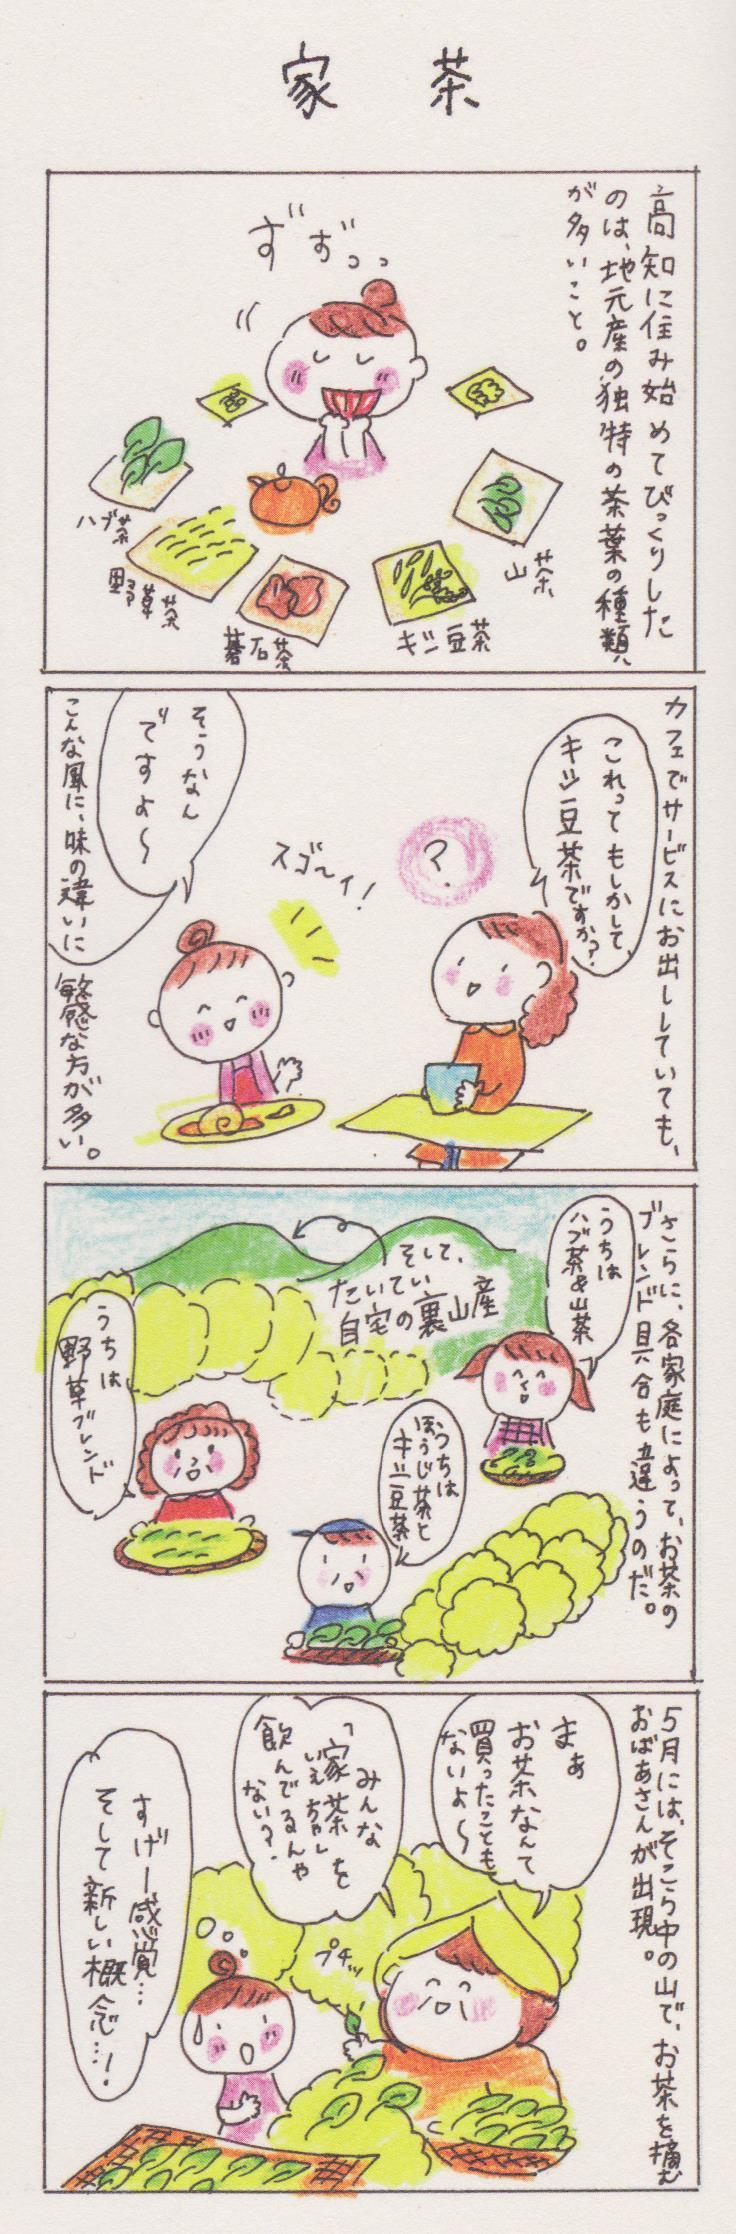 家　茶
高知に住み始めてびっくりした
のは、地元産の独特の茶葉の種類
が多いこと。
ずずっっ
山茶
キシ豆茶
碁石茶
野草茶
ハブ茶
カフェでサービスにお出ししていても、
これってもしかして、
キシ豆茶ですか?
?
スゴ〜イ!
そうなん
ですよ〜
こんな風に、味の違いに
敏感な方が多い。
さらに、各家庭によって、お茶の
ブレンド具合も違うのだ。
うちは
ハブ茶&山茶
そして、
たいてい
自宅の裏山産
うちは
ほうじ茶と
キシ豆茶
うちは
野草ブレンド
5月には、そこら中の山で、お茶を摘む
おばあさんが出現。
まぁ
お茶なんて
買ったことも
ないよ〜
みんな
「家茶」を
いえちゃ
飲んでるんや
ない?
プチッ
すげー感覚…
そして新しい概念…!